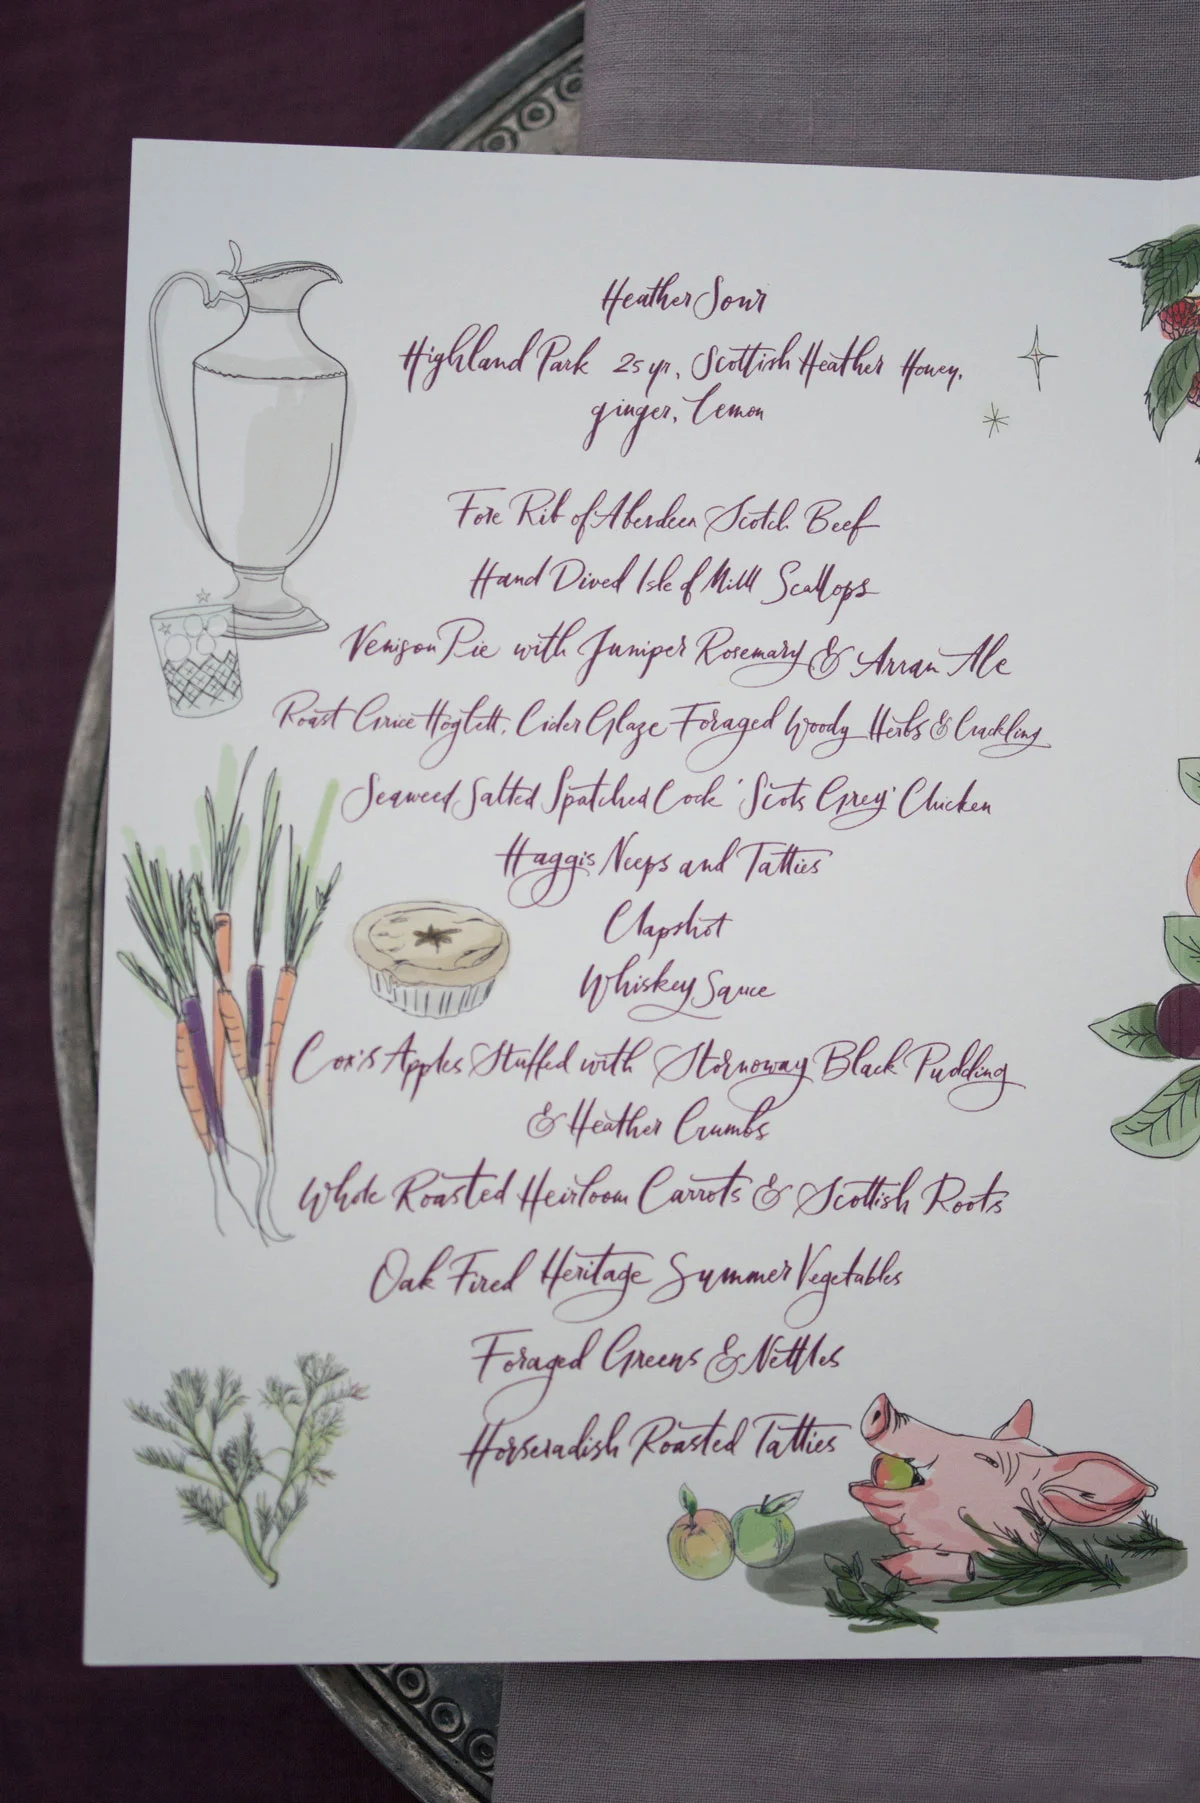 Heather Sour
Highland Park 25 yr, Scottish Heather Honey,
ginger, Lemon
Fore Rib of Aberdeen Scotch Beef
Hand Dived Isle of Mull Scallops
Venison Pie with Juniper Rosemary & Arran Ale
Roast Grice Hoglett, Cider Glaze Foraged Woody Herbs & Crackling
Seaweed Salted Spatched Cock 'Scots Grey' Chicken
Haggis Neeps and Tatties
Clapshot
Whiskey Sauce
Cox's Apples Stuffed with Stornoway Black Pudding
& Heather Crumbs
Whole Roasted Heirloom Carrots & Scottish Roots
Oak Fired Heritage Summer Vegetables
Foraged Greens & Nettles
Horseradish Roasted Tatties